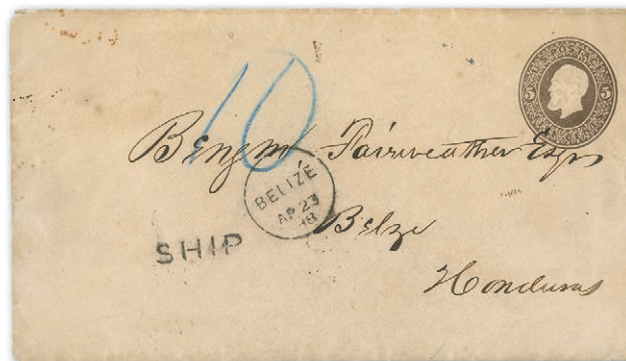 5 5
10
Benjmn Fairweather Esqr
BELIZE
AP 23
Belze
SHIP
Honduras